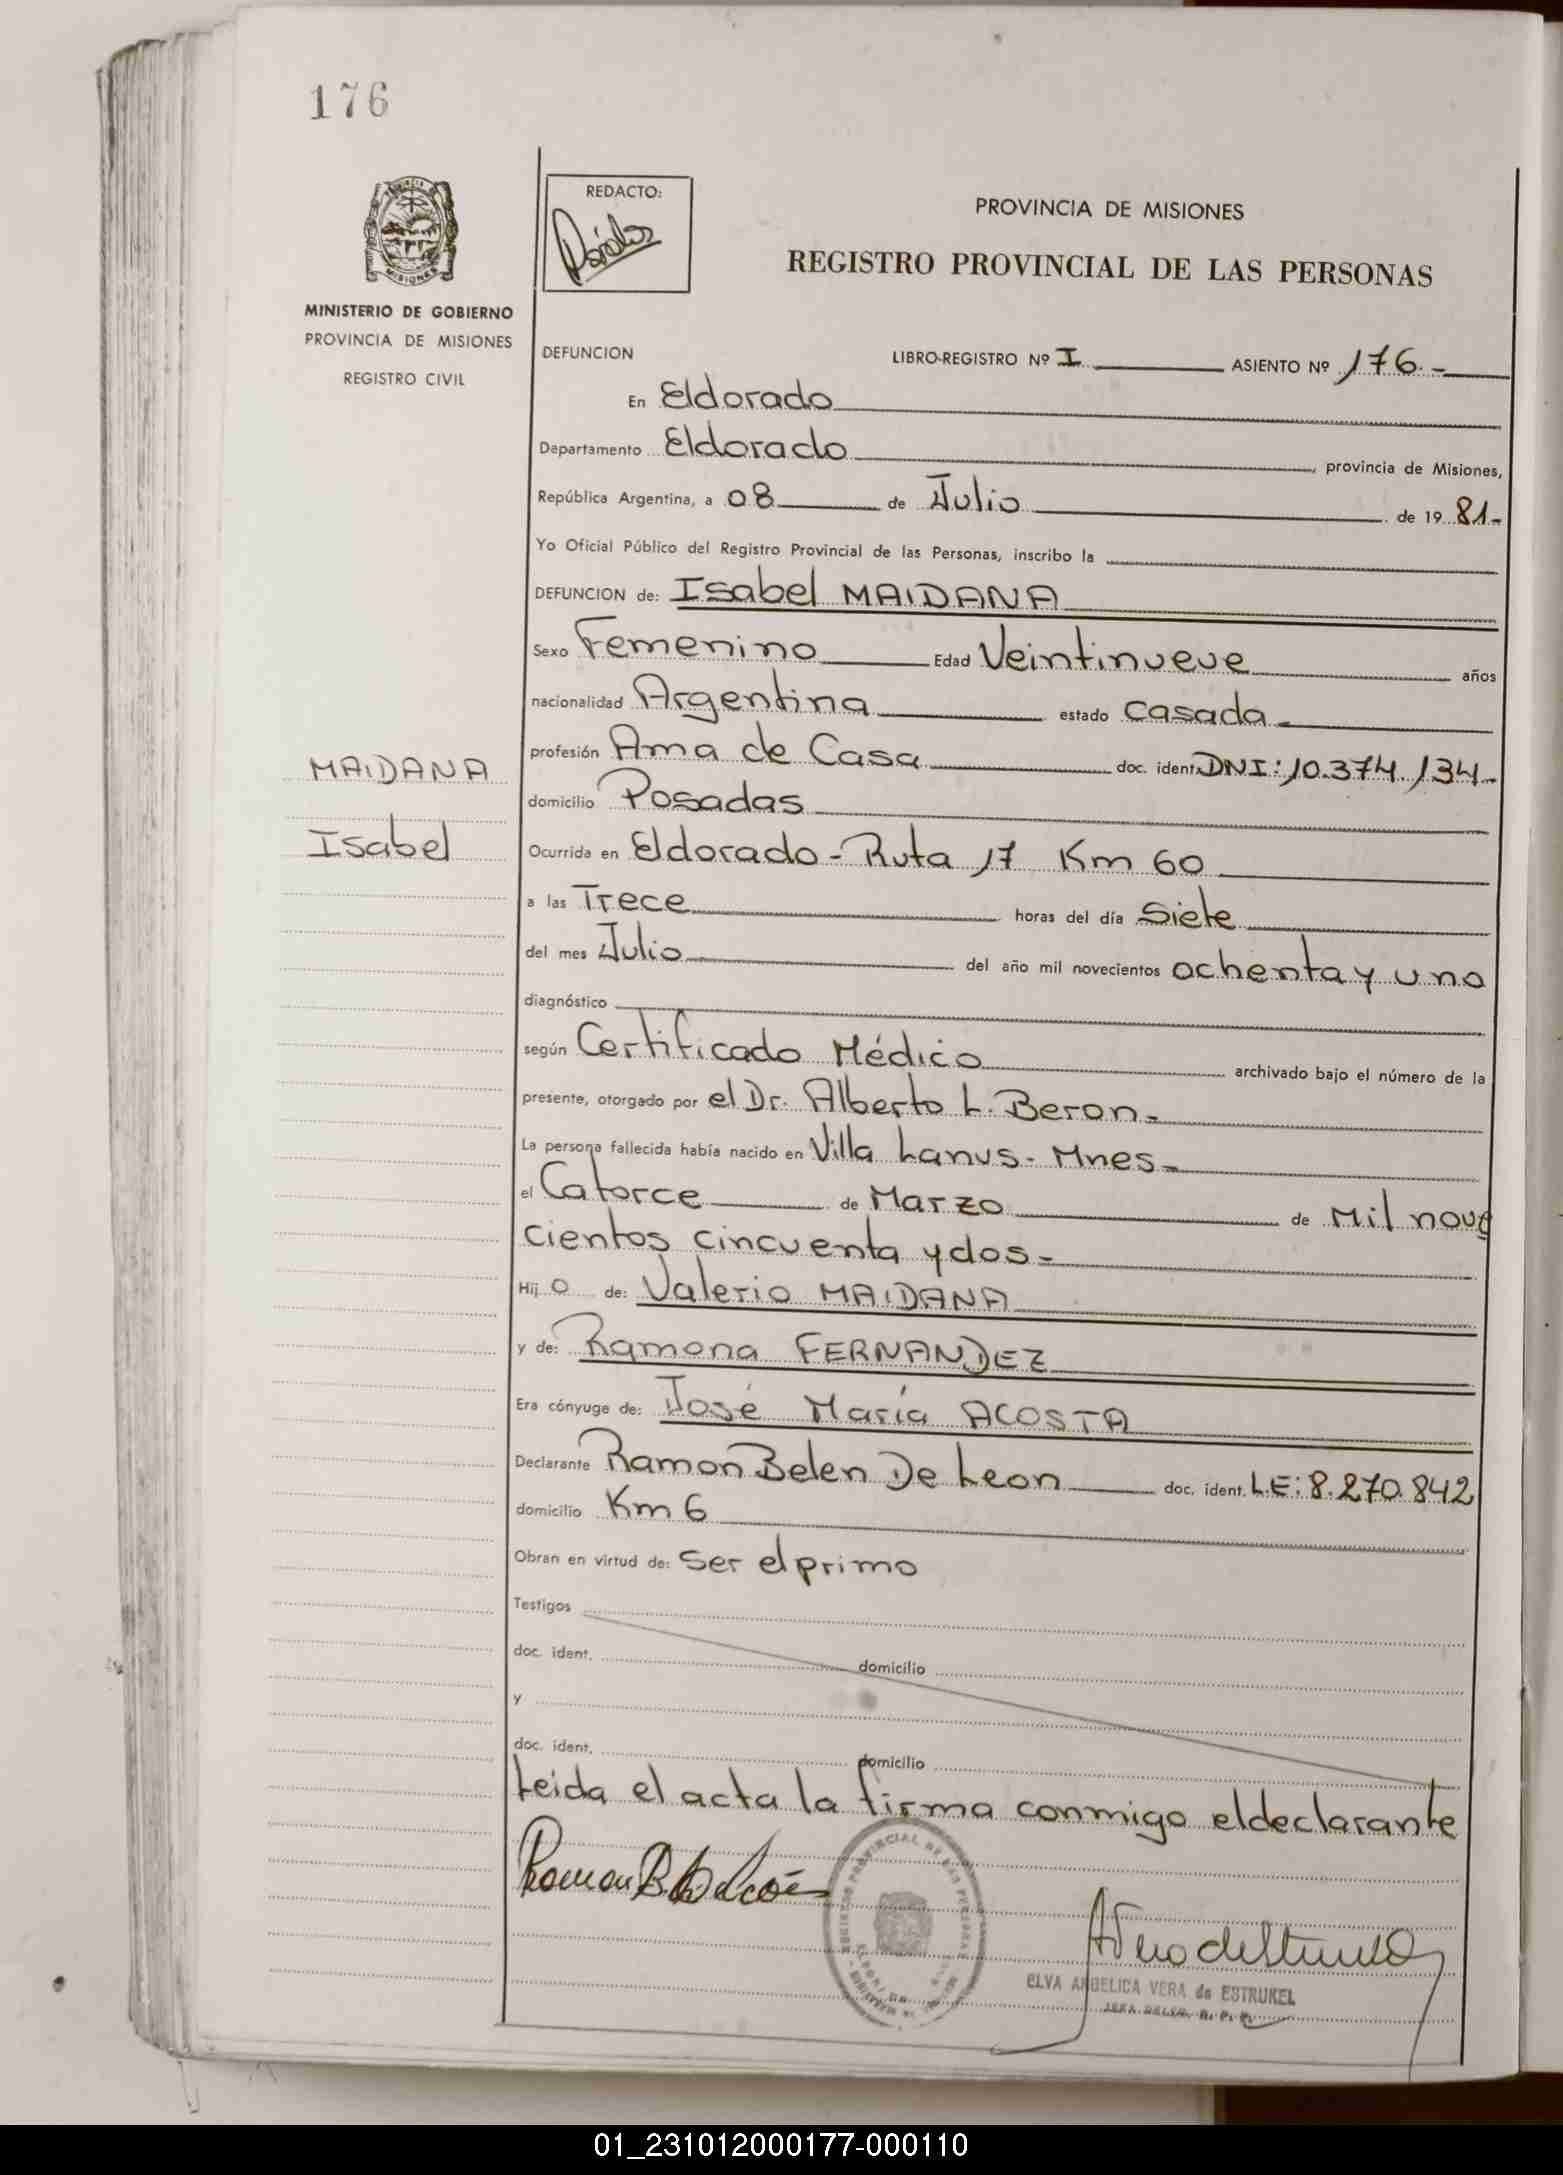 176
REDACTO:
PROVINCIA DE MISIONES
REGISTRO PROVINCIAL DE LAS PERSONAS
MISIONES
MINISTERIO DE GOBIERNO
PROVINCIA DE MISIONES
REGISTRO CIVIL
DEFUNCION LIBRO-REGISTRO Nº I ASIENTO Nº 176.-
En Eldorado
Departamento Eldorado, provincia de Misiones,
República Argentina, a 08 de Julio de 19 81-
Yo Oficial Público del Registro Provincial de las Personas, inscribo la
DEFUNCION de: Isabel MAIDANA
Sexo Femenino Edad Veintinueve años
nacionalidad Argentina estado Casada
profesión Ama de Casa doc. ident. DNI: 10.374.134-
MAIDANA
domicilio Posadas
Isabel
Ocurrida en Eldorado - Ruta 17 Km 60
a las Trece horas del día Siete
del mes Julio del año mil novecientos ochenta y uno
diagnóstico
según Certificado Médico archivado bajo el número de la
presente, otorgado por el Dr. Alberto L. Beron-
La persona fallecida había nacido en Villa Lanus - Mnes-
el Catorce de Marzo de Mil nove
cientos cincuenta y dos-
Hij o de: Valerio MAIDANA
y de: Ramona FERNANDEZ
Era cónyuge de: José María ACOSTA
Declarante Ramon Belen De Leon doc. ident. L.E: 8.270.842
domicilio Km 6
Obran en virtud de: Ser el primo
Testigos
doc. ident. domicilio
y
doc. ident. domicilio
Leida el acta la firma conmigo el declarante
ELVA ANGELICA VERA de ESTRUKEL
JEFA DELEG. R. P. P.
01_231012000177-000110